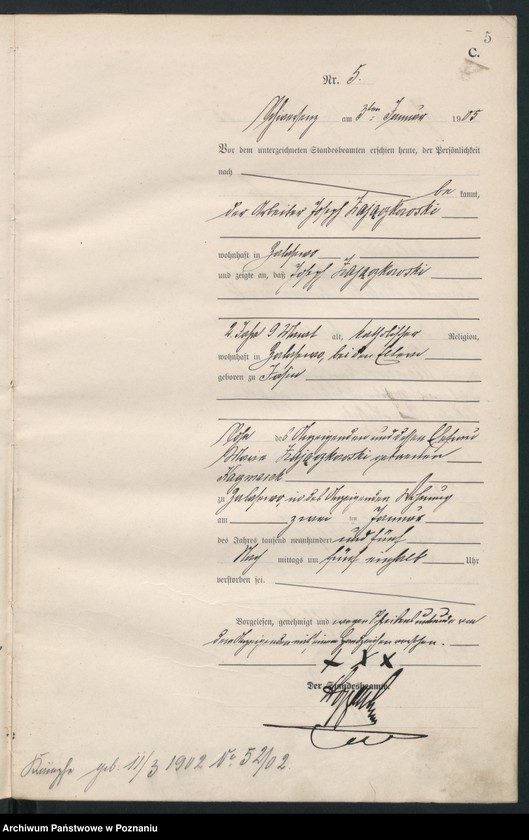 5
C.
Nr. 5.
Schwersenz am 3ten Januar 1905
Vor dem unterzeichneten Standesbeamten erschien heute, der Persönlichkeit
nach be kannt,
der Arbeiter Joseph Zajączkowski
wohnhaft in Zalasewo
und zeigte an, daß Joseph Zajączkowski
2 Jahr 9 Monat alt, katholischer Religion,
wohnhaft in Zalasewo, bei den Eltern
geboren zu
Sohn des Anzeigenden und dessen Ehefrau
Marie Zajączkowski geborenen
Kaczmarek
zu Zalasewo, in des Anzeigenden Wohnung
am zwei ten Januar
des Jahres tausend neunhundert und fünf
Nach mittags um fünf einhalb Uhr
verstorben sei.
Vorgelesen, genehmigt und wegen von
dem Anzeigenden mit seinem Handzeichen versehen.
+ X X
Der Standesbeamte.
geb. 11/3 1902 No 52/02.
Archiwum Państwowe w Poznaniu